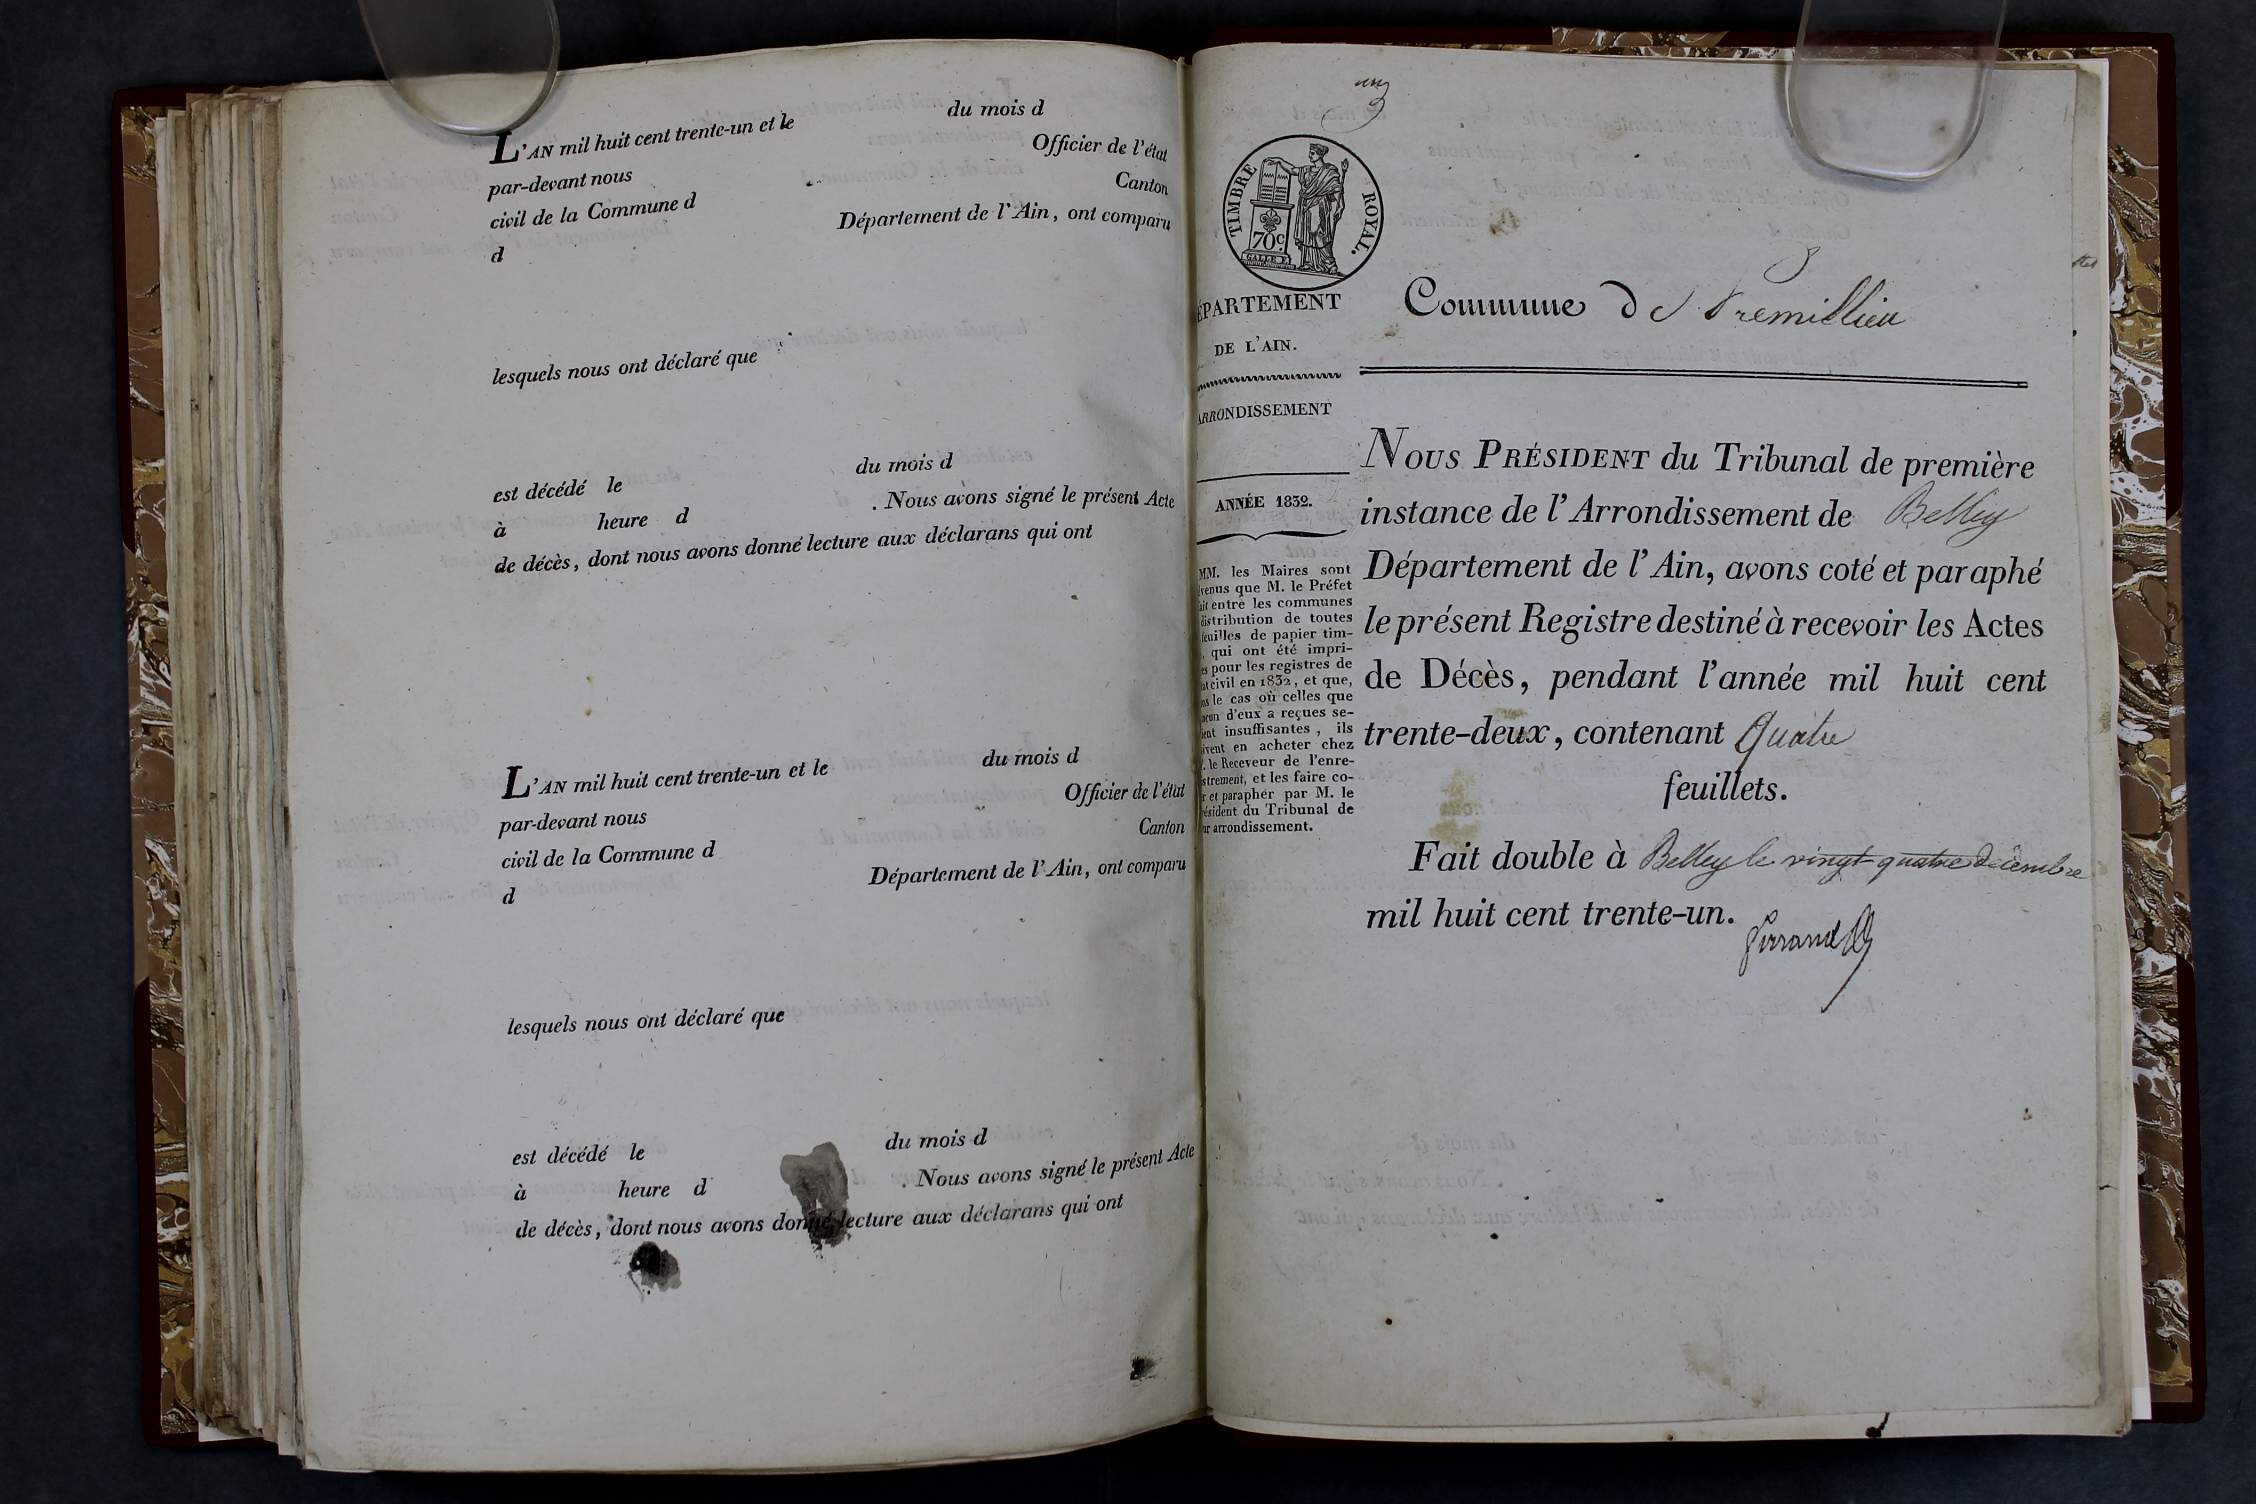 L'AN mil huit cent trente-un et le du mois d
par-devant nous Officier de l'état
civil de la Commune d Canton
d Département de l'Ain, ont comparu
lesquels nous ont déclaré que
est décédé le du mois d
à heure d . Nous avons signé le présent Acte
de décès, dont nous avons donné lecture aux déclarans qui ont
L'AN mil huit cent trente-un et le du mois d
par-devant nous Officier de l'état
civil de la Commune d Canton
d Département de l'Ain, ont comparu
lesquels nous ont déclaré que
est décédé le du mois d
à heure d . Nous avons signé le présent Acte
de décès, dont nous avons donné lecture aux déclarans qui ont
TIMBRE ROYAL.
70 c.
ÉPARTEMENT
DE L'AIN.
ARRONDISSEMENT
ANNÉE 1832.
MM. les Maires sont
venus que M. le Préfet
ait entre les communes
distribution de toutes
feuilles de papier tim-
, qui ont été impri-
es pour les registres de
at civil en 1832, et que,
ns le cas où celles que
acun d'eux a reçues se-
ient insuffisantes, ils
ivent en acheter chez
. le Receveur de l'enre-
strement, et les faire co-
r et parapher par M. le
résident du Tribunal de
ur arrondissement.
Commune de Premillieu
NOUS PRÉSIDENT du Tribunal de première
instance de l'Arrondissement de Belley
Département de l'Ain, avons coté et paraphé
le présent Registre destiné à recevoir les Actes
de Décès, pendant l'année mil huit cent
trente-deux, contenant Quatre
feuillets.
Fait double à Belley le vingt quatre Décembre
mil huit cent trente-un.